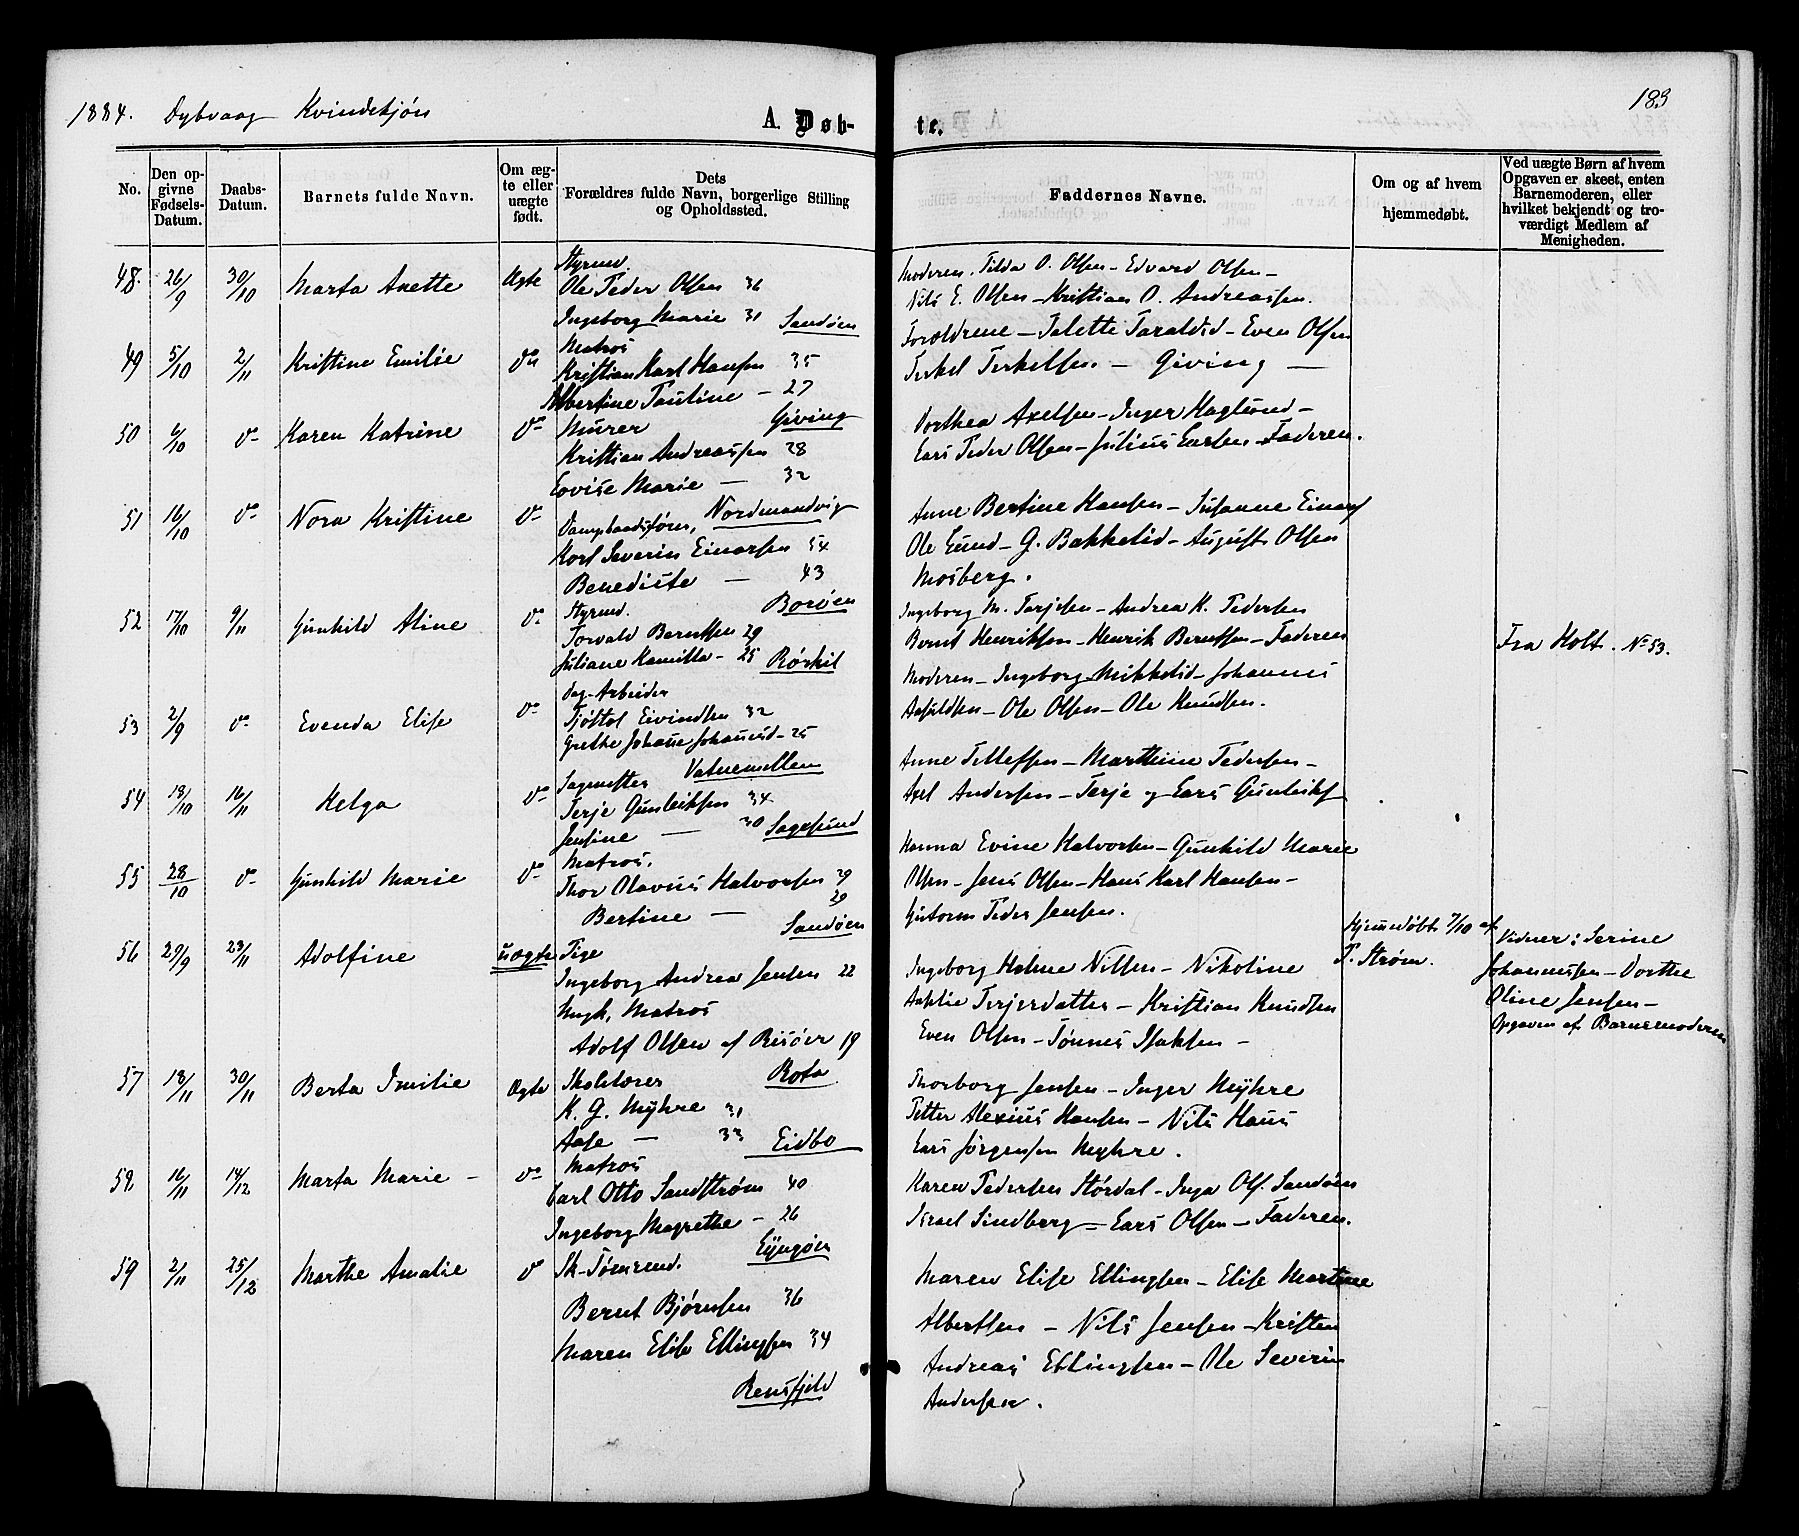 1884. Dybvaag Kvindekjøn
A. Døb-
te.
183
No.
Den op-
givne
Fødsels-
Datum.
Daabs-
Datum.
Barnets fulde Navn.
Om æg-
te eller
uægte
født.
Dets
Forældres fulde Navn, borgerlige Stilling
og Opholdssted.
Faddernes Navne.
Om og af hvem
hjemmedøbt.
Ved uægte Børn af hvem
Opgaven er skeet, enten
Barnemoderen, eller
hvilket bekjendt og tro-
værdigt Medlem af
Menigheden.
48. 26/9 30/10 Marta Anette Ægte
Styrmd.
Ole Peder Olsen 36
Ingeborg Marie 31 Sandøen
Moderen. Tilda O. Olsen - Edvard Olsen -
Nils E. Olsen - Kristian O. Andreassen.
49 5/10 2/11 Kristine Emilie Do
Matros
Kristian Karl Hansen 35
Albertine Pauline - 27
Giving
Forældrene - Talette Taraldsd - Even Olsen
Terkel Terkelsen. - Giving -
50 6/10 Do Karen Katrine Do
Murer
Kristian Andreassen 28
Lovise Marie - 32
Nordmandvig
Dorthea Axelsen - Inger Haglund -
Lars Peder Olsen - Julius Larsen - Faderen.
51 16/10 Do Nora Kristine Do
Dampbaadsfører,
Karl Severin Einarsen 54
Benedicte - 43
Borøen
Anne Bertine Hansen - Susanne Einars
Ole Lund - G. Bakkelid - August Olsen
Mosberg.
52 17/10 9/11 Gunhild Aline Do
Styrmd.
Torvald Berntsen 29
Juliane Kamilla - 25 Rørkil
Ingeborg M. Terjesen - Andrea K. Pedersen
Bernt Henriksen - Henrik Berntsen - Faderen
53 2/9 Do Evenda Elise Do
Dag-Arbeider
Tjøstol Eivindsen 32
Grethe Johanne Johannesd - 25
Vatnemellen
Moderen - Ingeborg Mikkelsd - Johannes
Ole Olsen - Ole Knudsen.
Fra Holt. No 53.
54 13/10 16/11 Helga Do
Sagmester
Terje Gunleiksen 34
Jensine - 30 Sagesund
Anne Tellefsen - Marthine Pedersen -
Axel Andersen - Terje og Lars Gunleiks
55 28/10 Do Gunhild Marie Do
Matros.
Thor Olavus Halvorsen 29
Bertine - 29
Sandøen
Hanna Evine Halvorsen - Gunhild Marie
Olsen - Jens Olsen - Hans Karl Hansen -
Gutorm Peder Jensen.
56 29/9 23/11 Adolfine uægte
Pige
Ingeborg Andrea Jensen 22
Ungk, Matros
Adolf Olsen af Risøer 19
Rota
Ingeborg Helene Nilsen - Nikoline
Terjesdatter - Kristian Knudsen
Even Olsen - Tønnes Isaksen -
Hjemmedøbt 7/10 af
P. Strøm.
Vidner: Serine
Johannessen - Dorthe
Oline Jensen -
Opgaven af Barnemoderen
57 18/11 30/11 Berta Emilie Ægte
Skolelærer
K. G. Myhre 31
Aase - 33 Eidbo
Thorborg Jensen - Inger Myhre
Petter Alexius Hansen - Nils Hans
Lars Jørgensen Myhre.
58 16/11 14/12 Marta Marie - Do
Matros
Carl Otto Sandstrøm 40
Ingeborg Magrethe - 26
Lyngøer
Karen Pedersen Størdal - Inga Ols. Sandøen
Israel Lindberg - Lars Olsen - Faderen.
59 2/11 25/12 Marthe Amalie Do
Sk-Tømrmd.
Bernt Bjørnsen 36
Maren Elise Ellingsen 34
Rensfjeld
Maren Elise Ellingsen - Elise Martine
Albertsen - Nils Jensen - Kristen
Andreas Ellingsen - Ole Severin
Andersen.